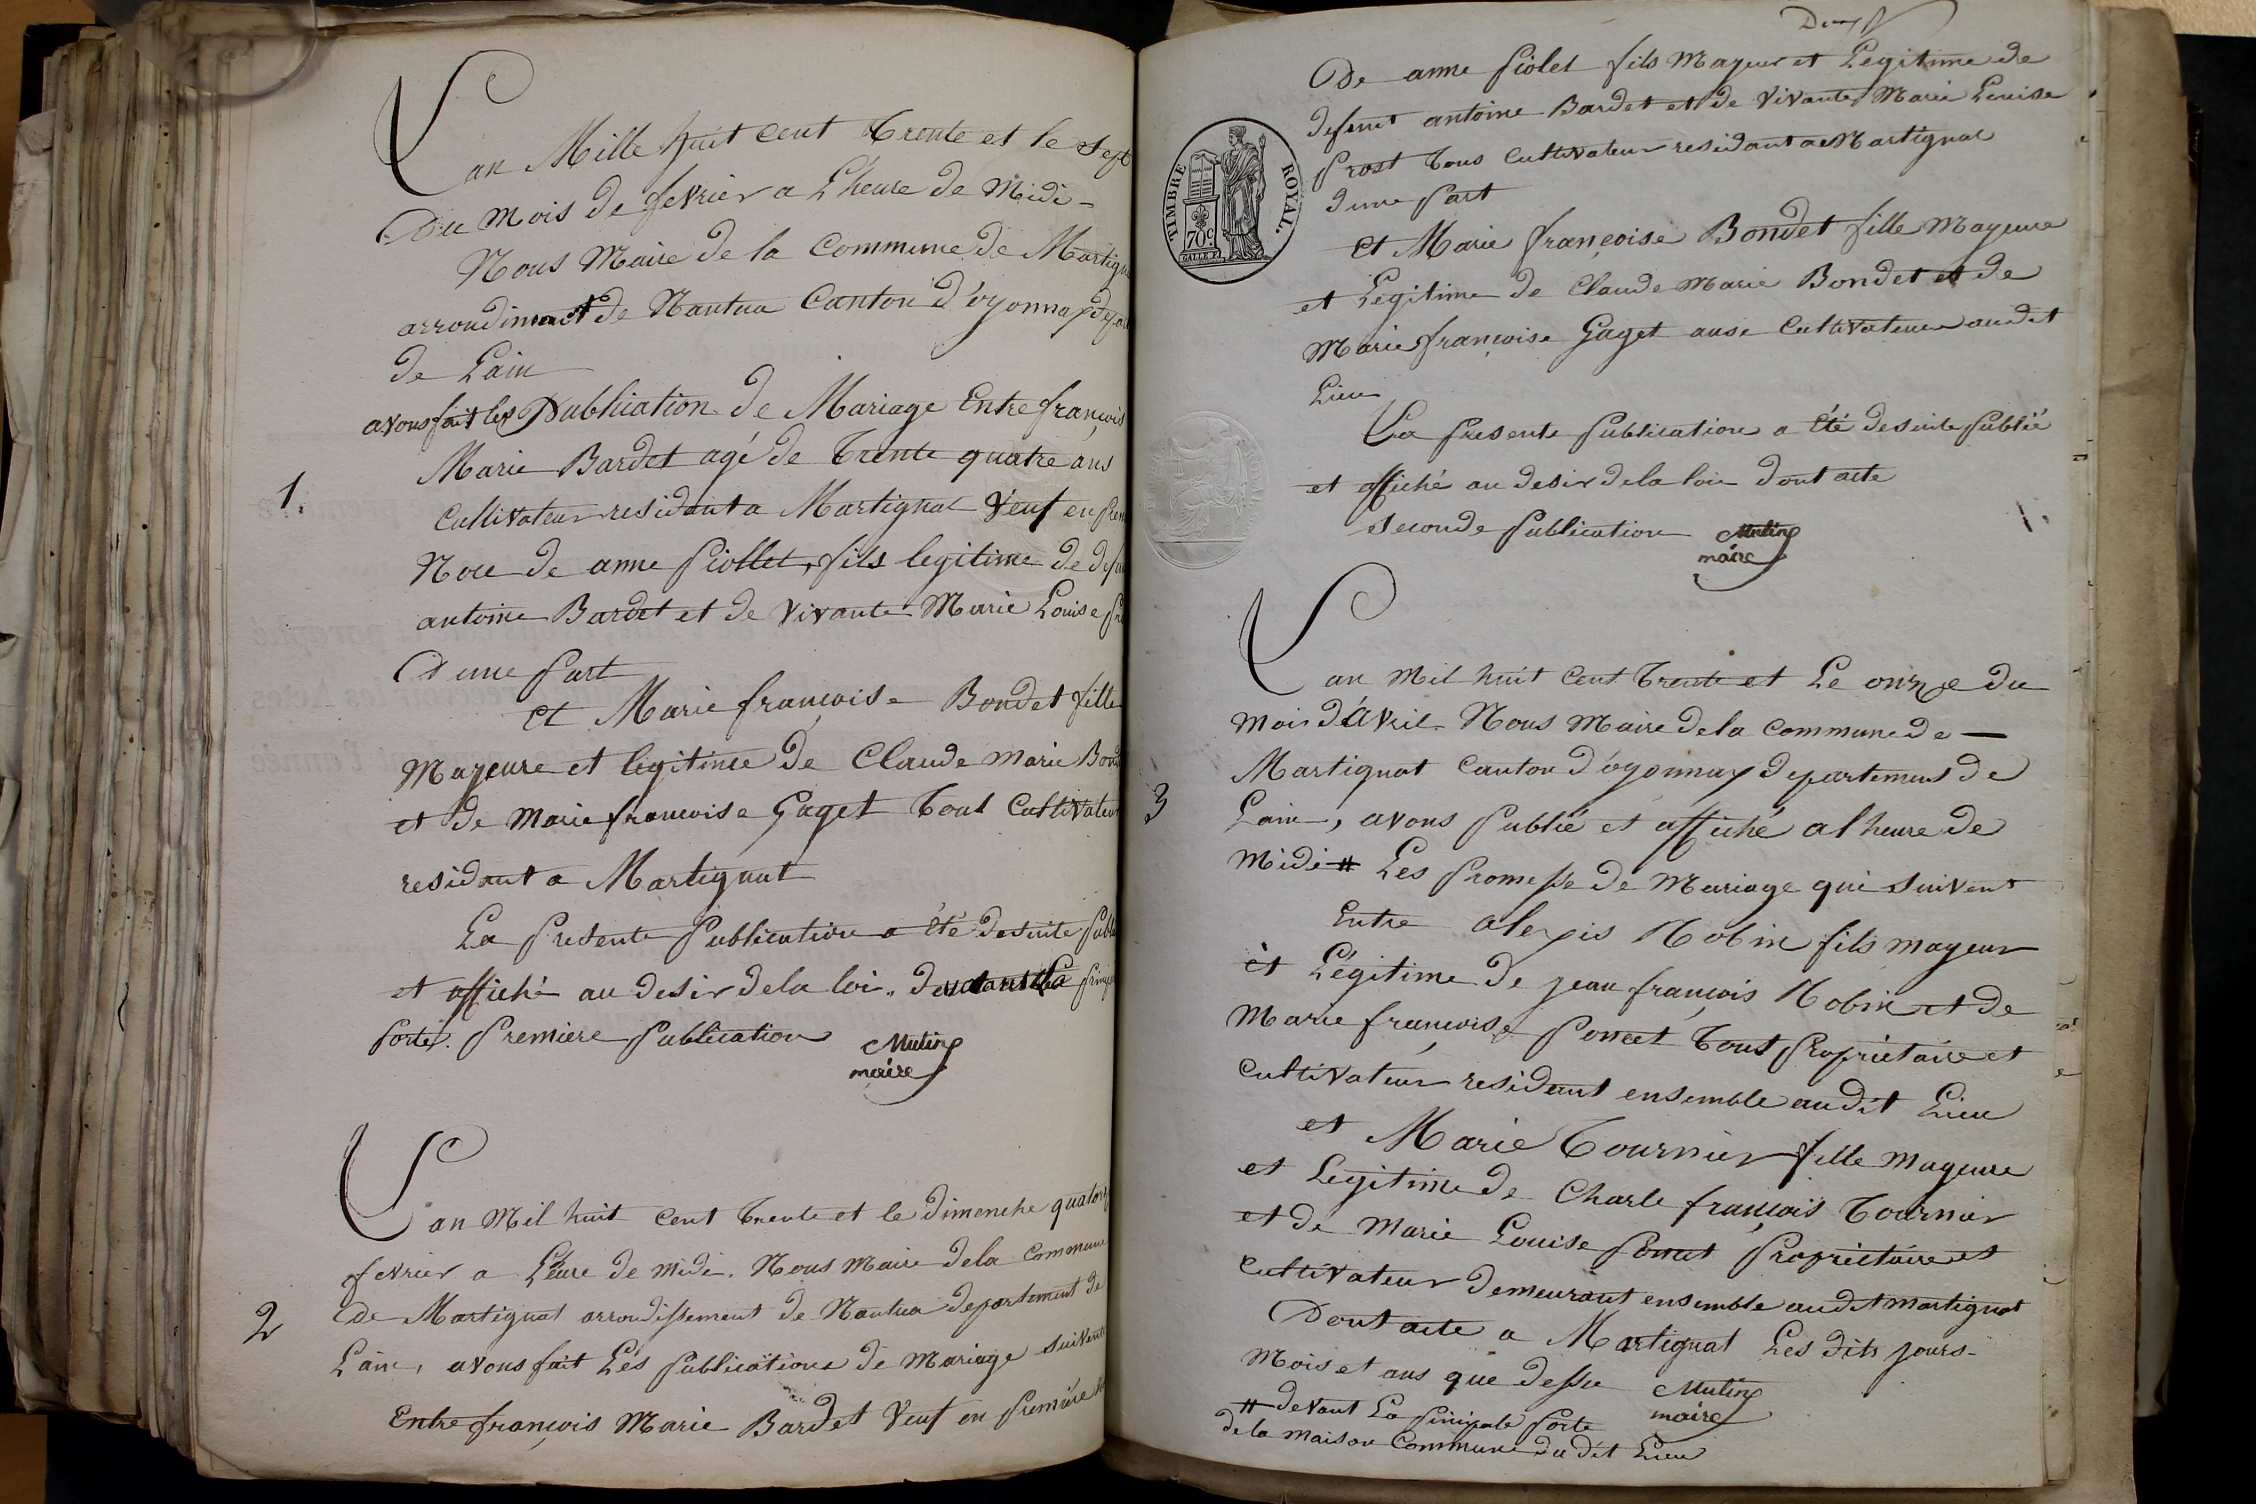 Lan Mille huit cent Trente et le sept
Du Mois de fevrier a L'heure de Midi -
Nous Maire de la Commune de Martigna
arrondimant de Nantua Canton d'oyonnax depar
de Lain
avons fait les Publication de Mariage Entre françois
1. Marie Bardet agé de Trente quatre ans
Cultivateur resident a Martignat Veuf en prem
Noce de anne piollet, fils legitime de defu
antoine Bardet et de vivante Marie Louise pr
D'une part
et Marie françoise Bondet fille
Mayeure et legitime de Claude marie Bond
et de Marie françoise Gaget Tout Cultivateur
resident a Martignat
La presente publication a été desuite publ
et affiché au desir de la loi. devant La prinsip
porte. premiere publication
Mutin
maire
Lan Mil huit cent Trente et le dimenche quatorze
fevrier a L'eure de midi. Nous Maire de la Commune
2 de Martignat arrondissement de Nantua departement de
Lain, avons fait Les publications de Mariage suivente
Entre françois Marie Bardet Veuf en premiere
Deux
De anne piolet fils Mayeur et Legitime de
defunt antoine Bardet et de vivante Marie Louise
prost Tous Cultivateur resident a Martignat
d'une part
et Marie françoise Bondet fille Mayeure
et Legitime de Claude Marie Bondet et de
Marie françoise Gaget ausi Cultivateur audit
Lieu
La presente publication a été desuite publié
et affiché au desir de la loi dont acte
seconde publication
Mutin
maire
TIMBRE ROYAL
70c
Lan Mil huit Cent Trente et Le onze du
Mois d'Avril Nous Maire de la Commune de —
Martignat Canton d'oyonnax departement de
3 Lain, avons publié et affiché a l'heure de
Midi # Les promesse de Mariage qui suivent
Entre alexis Nobin fils mayeur
et Légitime de jean françois Nobin et de
Marie françoise poncet Tout propriétaire et
Cultivateur resident ensemble audit Lieu
et Marie Tournier fille mayeure
et Legitime de Charle françois Tournier
et de Marie Louise poncet propriétaire et
Cultivateur demeurant ensemble audit martignat
Dont acte a Martignat Les dits jours -
Mois et ans que dessu
Mutin
maire
# devant La prinipale porte
de la maison Commune du dit Lieu